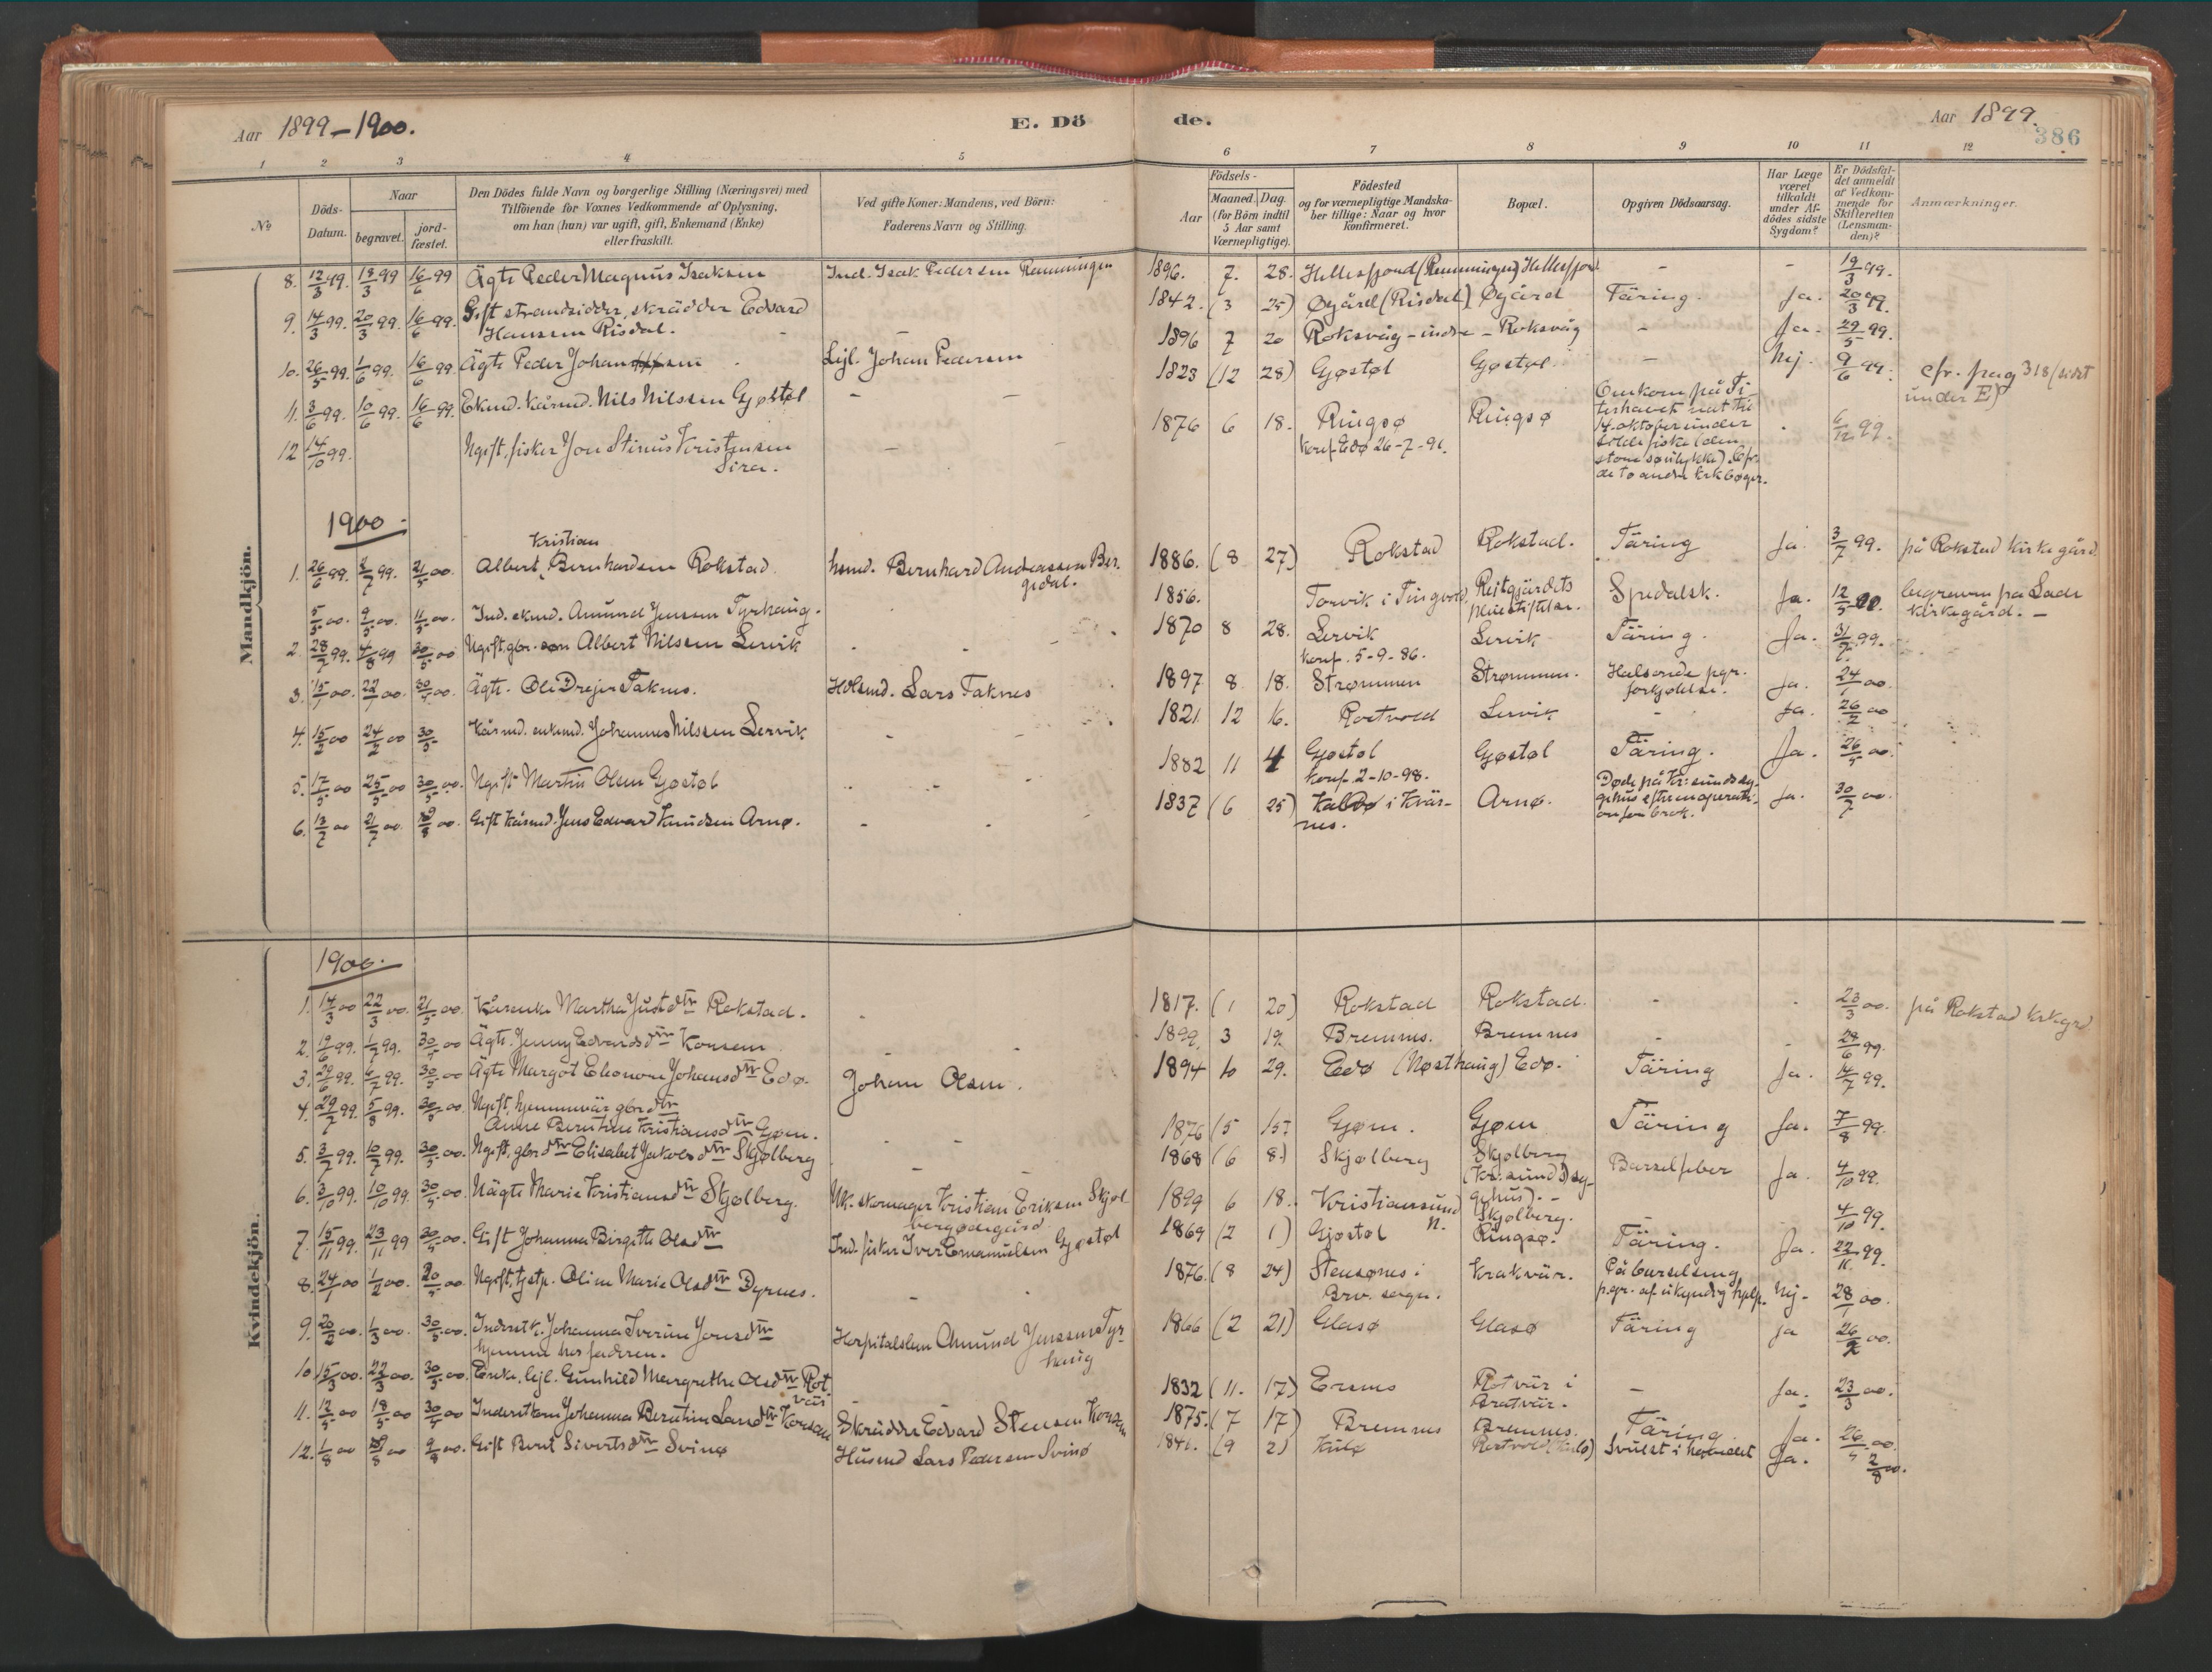 Aar 1899-1900.
E. Dö
de.
Aar 1899.
386
1 2 3 4 5 6 7 8 9 10 11 12
No
Döds-Datum.
Naar
begravet.
jord-fæstet.
Den Dödes fulde Navn og borgerlige Stilling (Næringsvei) med
Tilföiende for Voxnes Vedkommende af Oplysning,
om han (hun) var ugift, gift, Enkemand (Enke)
eller fraskilt.
Ved gifte Koner: Mandens, ved Börn:
Faderens Navn og Stilling.
Födsels-
Aar
Maaned. Dag.
(for Börn indtil
5 Aar samt
Værnepligtige).
Födested
og for værnepligtige Mandska-
ber tillige: Naar og hvor
konfirmeret.
Bopæl.
Opgiven Dödsaarsag.
Har Læge
været
tilkaldt
under Af-
dödes sidste
Sygdom?
Er Dödsfal-
det anmeldt
af Vedkom-
mende for
Skifteretten
(Lensman-
den)?
Anmærkninger.
Mandkjön.
8. 12/3 99. 18/3 99 16/6 99 Ägte Peder Magnus Isaksen Ind. Isak Pedersen Remmingen 1896. 7. 28. Hellesfjord (Remmingen) Hellesfjord - - 19/3 99.
9. 14/3 99. 20/3 99. 16/6 99. Gift strandsidder, skrädder Edvard
Hanssen Risdal. - - 1842. (3 25) Øgård (Risdal) Øgård Täring. Ja. 20/3 99.
10. 26/5 99. 1/6 99. 16/6 99. Ägte Peder Johansen Lejl. Johan Pedersen 1896 7 20 Roksvåg-indre - Roksvåg - Ja. 29/5 99.
11. 3/6 99. 10/6 99. 16/6 99. Ekmd. kårmd. Nils Nilssen Gjøstøl - - 1823 (12 28) Gjøstøl Gjøstøl. - Nej. 9/6 99. cfr. pag 318 (sidst
under E)
12 14/10 99. Ugift, fisker Jon Stinus Kristensen
Sira. - 1876 6 18. Ringsø
konf. Edø 26-7-91. Ringsø Omkom på Ti-
terhavet nat til
14. oktober under
sildefiske (den
store søulykke). Cfr.
de to andre kirkbøger. 6/12 99.
1900.
1. 26/6 99. 3/7 99. 21/5 00. Albert Kristian Bernhardsen Rokstad. husmd. Bernhard Andreassen Ber-
gsdal. 1886. (8 27) Rokstad Rokstad. Täring Ja. 3/7 99. på Rokstad Kirkegård.
5/5 00. 9/5 00. 11/5 00. Ind. ekmd. Amund Jensen Tyrhaug. 1856. Torvik i Tingvold. Reitgjärdets
pleiestiftelse. Spedalsk. Ja. 12/5 00. begraven på Lade
kirkegård. -
2. 28/7 99. 4/8 99 30/5 00 Ugift, gbr. søn Albert Nilssen Lervik - - 1870 8 28. Lervik
konf. 5-9-86. Lervik Täring. Ja. 31/7 99.
3. 15/1 00. 22/1 00. 30/5 00. Ägte. Ole Drejer Taknes. Holsmd. Lars Taknes 1897 8 18. Strømmen Strømmen. Halsonde pgr.
forkjølelse. Ja. 24/1 00.
4. 15/2 00 24/2 00 30/5 Kårmd. enkmd. Johannes Nilssen Lervik - - 1821. 12 16. Rostvold Lervik - Ja. 26/2 00
5. 17/5 00 25/5 00 30/5 00. Ugift Martin Olsen Gjøstøl - - 1882 11 4 Gjøstøl
konf. 2-10-98. Gjøstøl Täring. Ja. 26/5 00.
6. 13/7 00 21/7 00. /8 00. Gift kårmd. Jens Edvard Knudsen Arnø. - - 1837 (6 25) Kalvø i Kvär-
nes. Arnø. Døde på Kr:sunds sy-
gehus efter en operati-
on for brok. Ja. 30/7 00.
Kvindekjön.
1900.
1. 14/3 00 22/3 00. 21/5 00. Kårenke Martha Justdtr Rokstad. - 1817. (1 20) Rokstad Rokstad. - - 23/3 00. på Rokstad kirkegrd
2. 19/6 99. 1/7 99. 30/5 00 Ägte Jenny Edvardsdtr Korsem - - 1899. 3 19. Bremnes. Bremnes - - 28/6 99.
3. 29/6 99. 6/7 99. 30/5 00 Ägte Margot Eleonore Johansdtr Edø. Johan Olsen. 1894 10 29. Edø (Nøsthaug) Edø. Täring Ja. 14/7 99.
4. 29/7 99. 5/8 99. 30/5 00. Ugift, hjemmevär. gbrdtr
Anne Berntine Kristiansdtr Gjøen. - - 1876 (5 15? Gjøen. Gjøen Täring Ja. 7/8 99.
5. 3/7 99. 10/7 99. 30/5 00. Ugift, gbrdtr Elisabet Jakobsdtr Skjølberg - - 1868 (6 8.) Skjølberg Skjølberg
(Kr:sunds sy-
gehus). - Barselfeber Ja. 4/10 99.
6. 3/10 99. 10/10 99. 30/5 00. Uägte Marie Kristiansdtr Skjølberg. Uk. skomager Kristian Eriksen Skjøl-
bergødegård. 1899 6 18. Kristiansund
N. Skjølberg. - 4/10 99.
7. 15/11 99. 23/11 99 30/5 00. Gift Johanna Birgitte Olsdtr Ind. fisker Iver Emanuelsen Gjøstøl 1869 (2 1) Gjøstøl Ringsø. Täring. Ja. 22/11 99.
8. 24/1 00 1/2 00. 20/5 00. Ugift, tjstp. Oline Marie Olsdtr Dyrnes. - - 1876. (8 24) Stensønes i
Brv. sogn. Krakvär. På barselseng
pgr. af ukyndig hjelp. Nej- 28/1 00.
9. 20/2 00. 1/3 00. 30/5 00. Inderstk. Johanna Iverine Jonsdtr
hjemme hos faderen. Hospitalslem Amund Jenssens Tyr-
haug 1866 (2 21) Glasø Glasø Täring Ja 26/2 00.
10 15/3 00. 22/3 00. 30/5 00. Enke. lejl. Gunhild Margrethe Olsdtr Rot-
vär - 1832 (11. 17) Ersnes Rotvär i
Bratvär. - Ja. 23/3 00.
11. 12/5 00 18/5 00 30/5 00 Inderstkone Johanna Berntine Larsdtr Korsem Skrädder Edvard Stensen Korsem 1875. (7 17) Bremnes Bremnes. Täring. Ja. 26/5 00.
12. 1/8 00 /8 00 9/8 00. Gift Berit Sivertsdtr Svinø Husmd Lars Pedersen Svinø 1841. (9 2) Kulø Rostvold (Kulø) Svulst i hovedet Ja. 2/8 00.